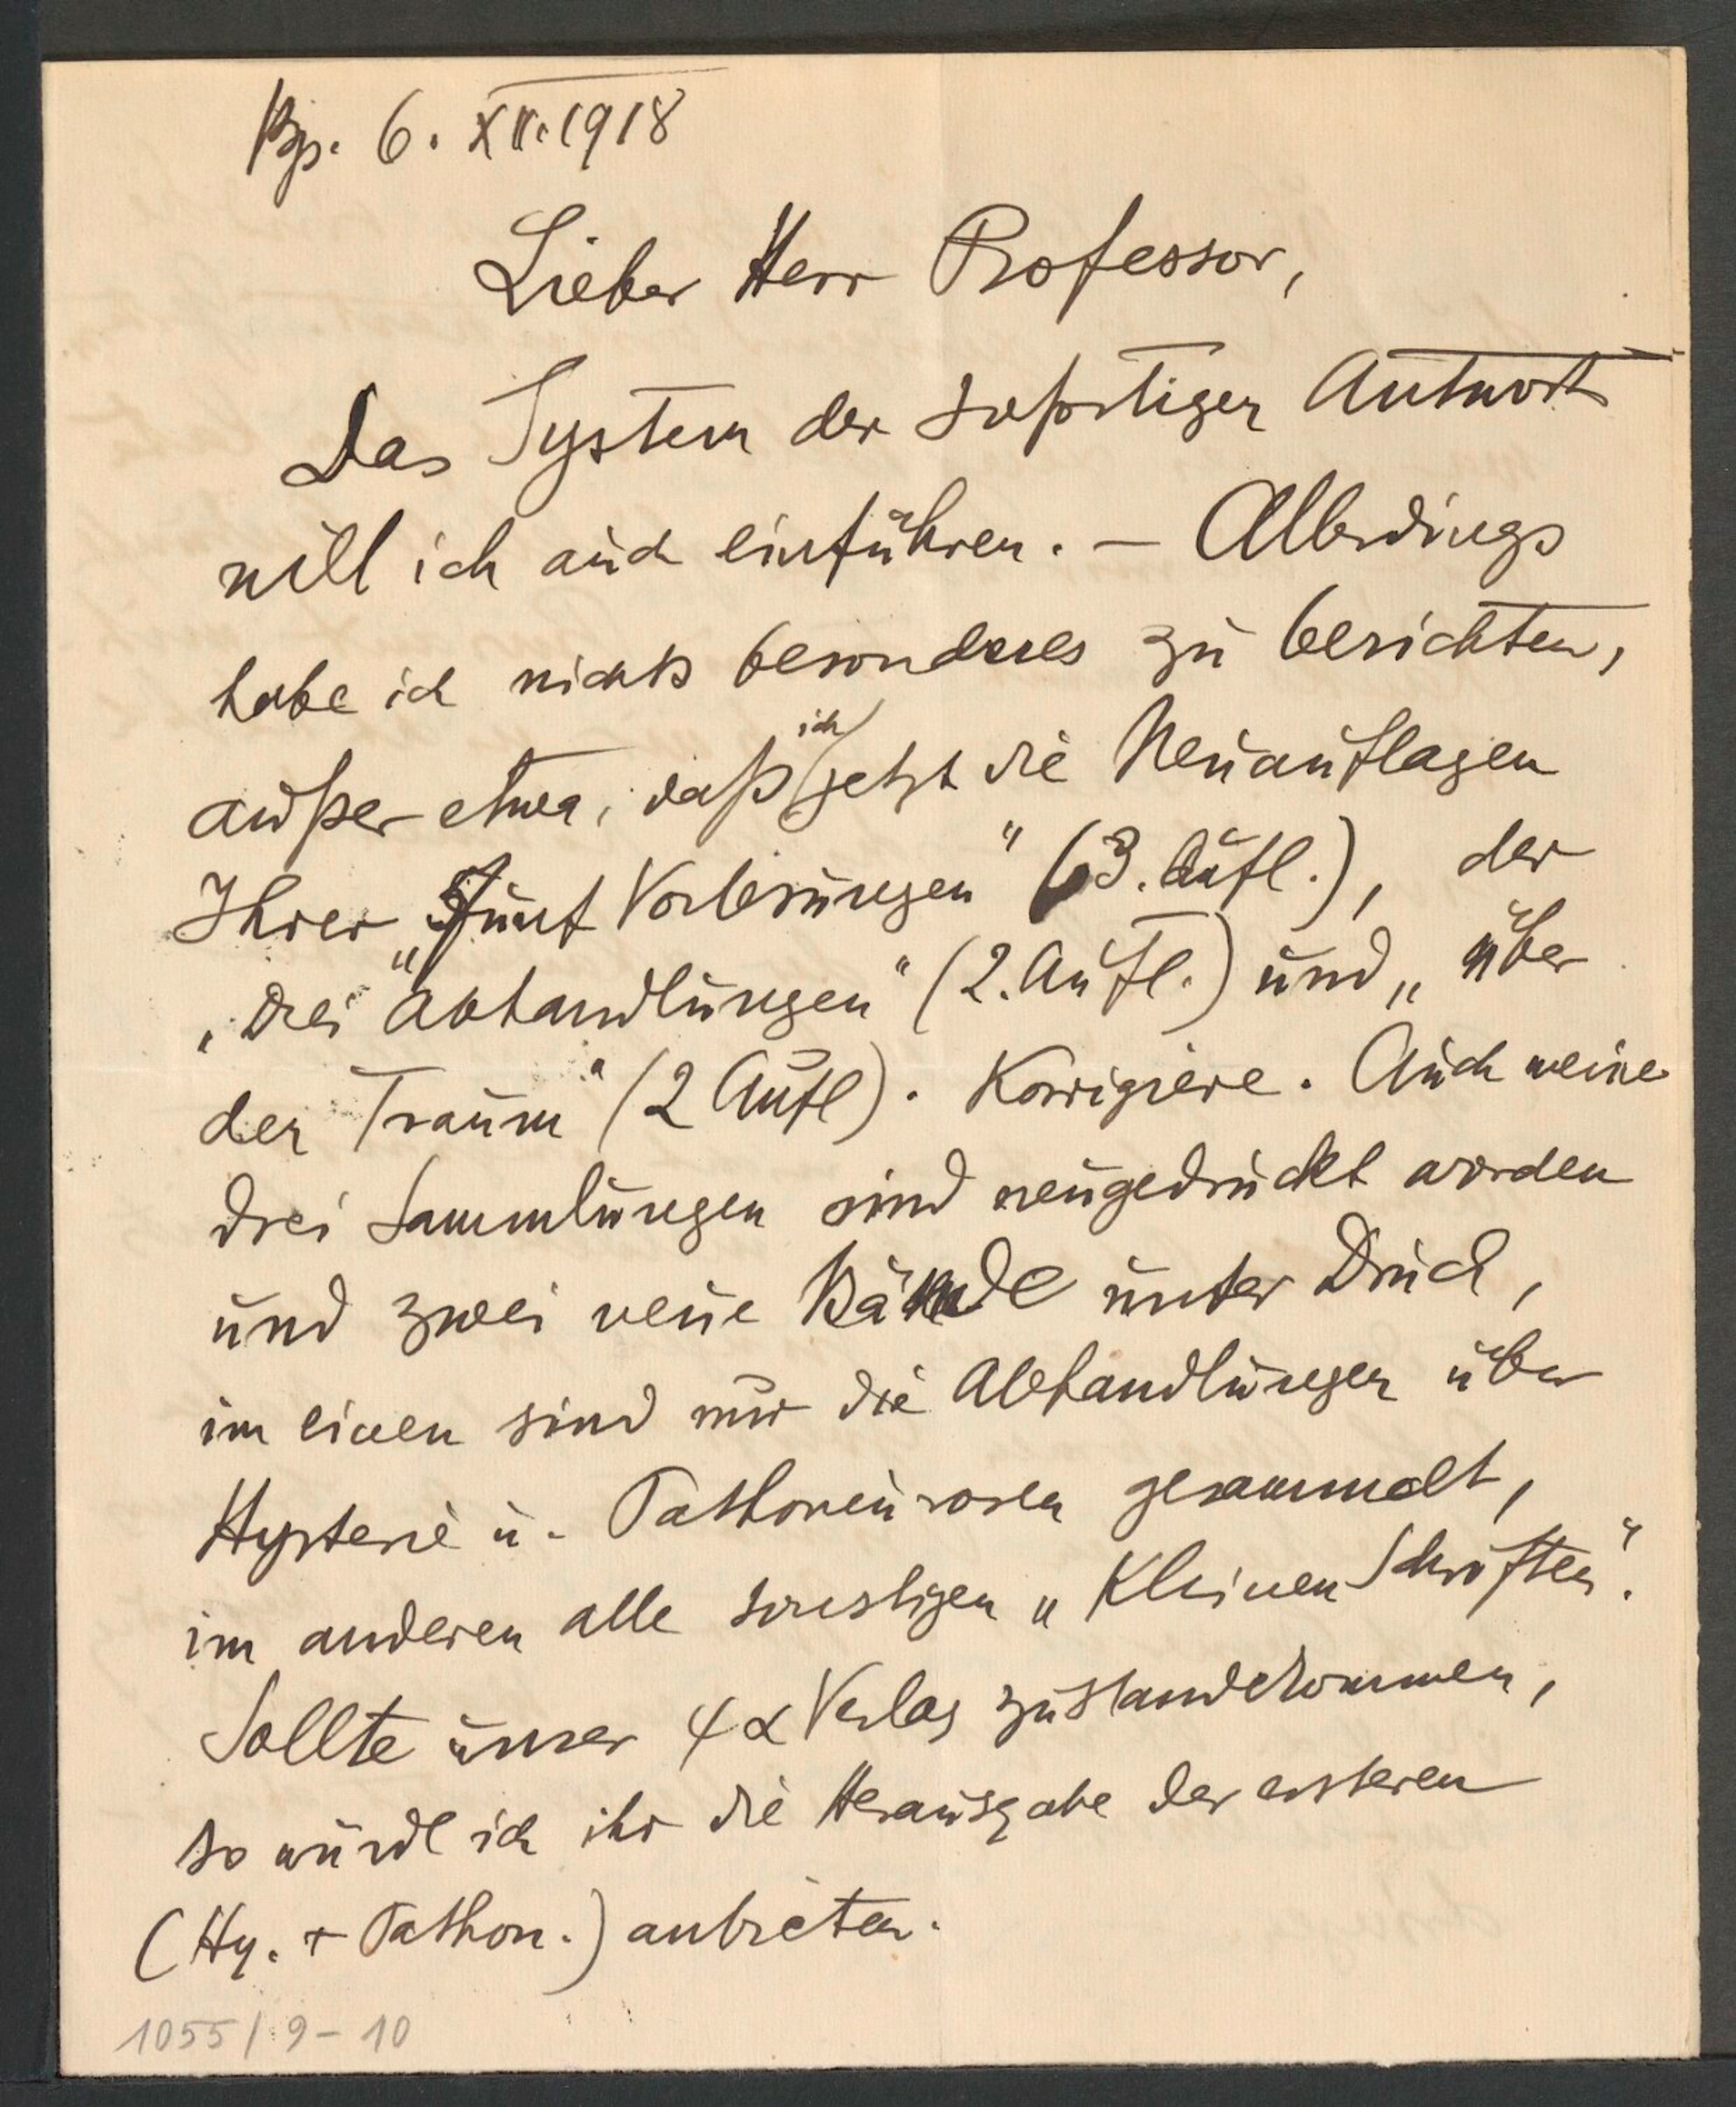 Bp. 6. XII. 1918
Lieber Herr Professor,
Das System der sofortigen Antwort
will ich auch einführen. – Allerdings
habe ich nichts besonderes zu berichten,
außer etwa, daß ich jetzt die Neuauflagen
Ihrer „Fünf Vorlesungen“ (3. Aufl.), der
„Drei Abhandlungen“ (2. Aufl.) und „über
den Traum“ (2 Aufl). Korrigiere. Auch meine
drei Sammlungen sind neugedruckt worden
und zwei neue Bände unter Druck,
im einen sind nur die Abhandlungen über
Hysterie u. Pathoneurosen gesammelt,
im anderen alle sonstigen „Kleinen Schriften“.
Sollte unser ψα Verlag zustandekommen,
so würde ich ihr die Herausgabe der ersteren
(Hy. + Pathon.) anbieten.
1055/9-10